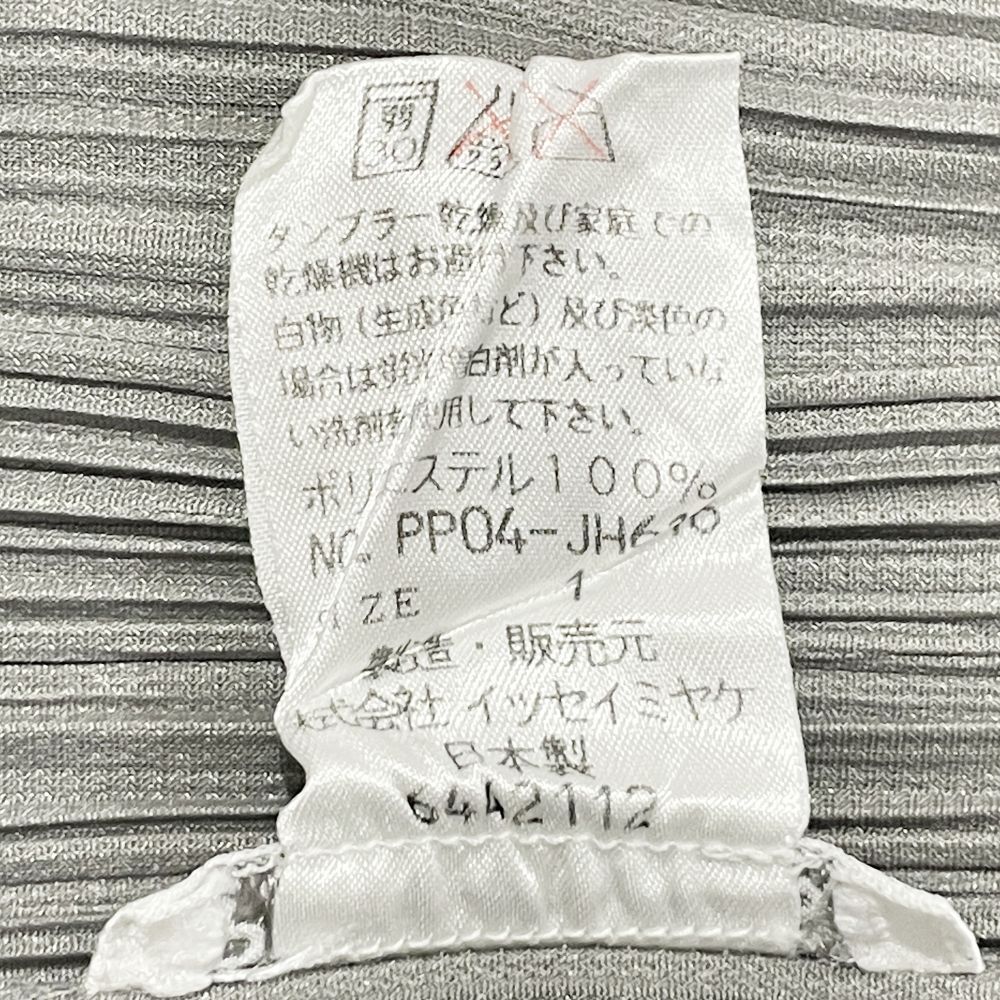 弱
30
タンブラー乾燥及び家庭での
乾燥機はお避け下さい。
白物(生成色など)及び淡色の
場合は蛍光増白剤が入っていな
い洗剤を使用して下さい。
ポリエステル100%
NO. PP04-JH
SIZE 1
製造・販売元
株式会社イッセイミヤケ
日本製
6442112